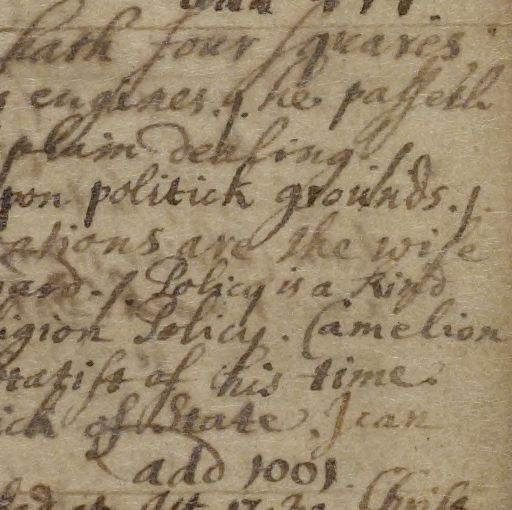 hath four squares
engines. he passeth
plain dealing /
pon politick grounds. /.
ations are the wise
ard. /. Policy is a kind
igion Policy. Camelion
tatist of his time
ick of State. I can
add 1001
Christ